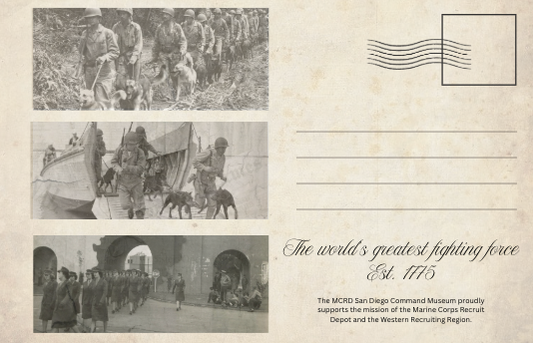 The world's greatest fighting force
Est. 1775
The MCRD San Diego Command Museum proudly
supports the mission of the Marine Corps Recruit
Depot and the Western Recruiting Region.